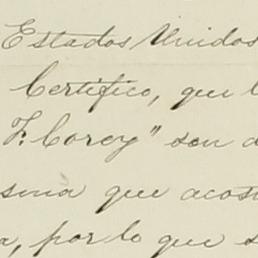 Estados Unidos
Certifico, que l
F. Corey" son d
sma que acost
a, por lo que s